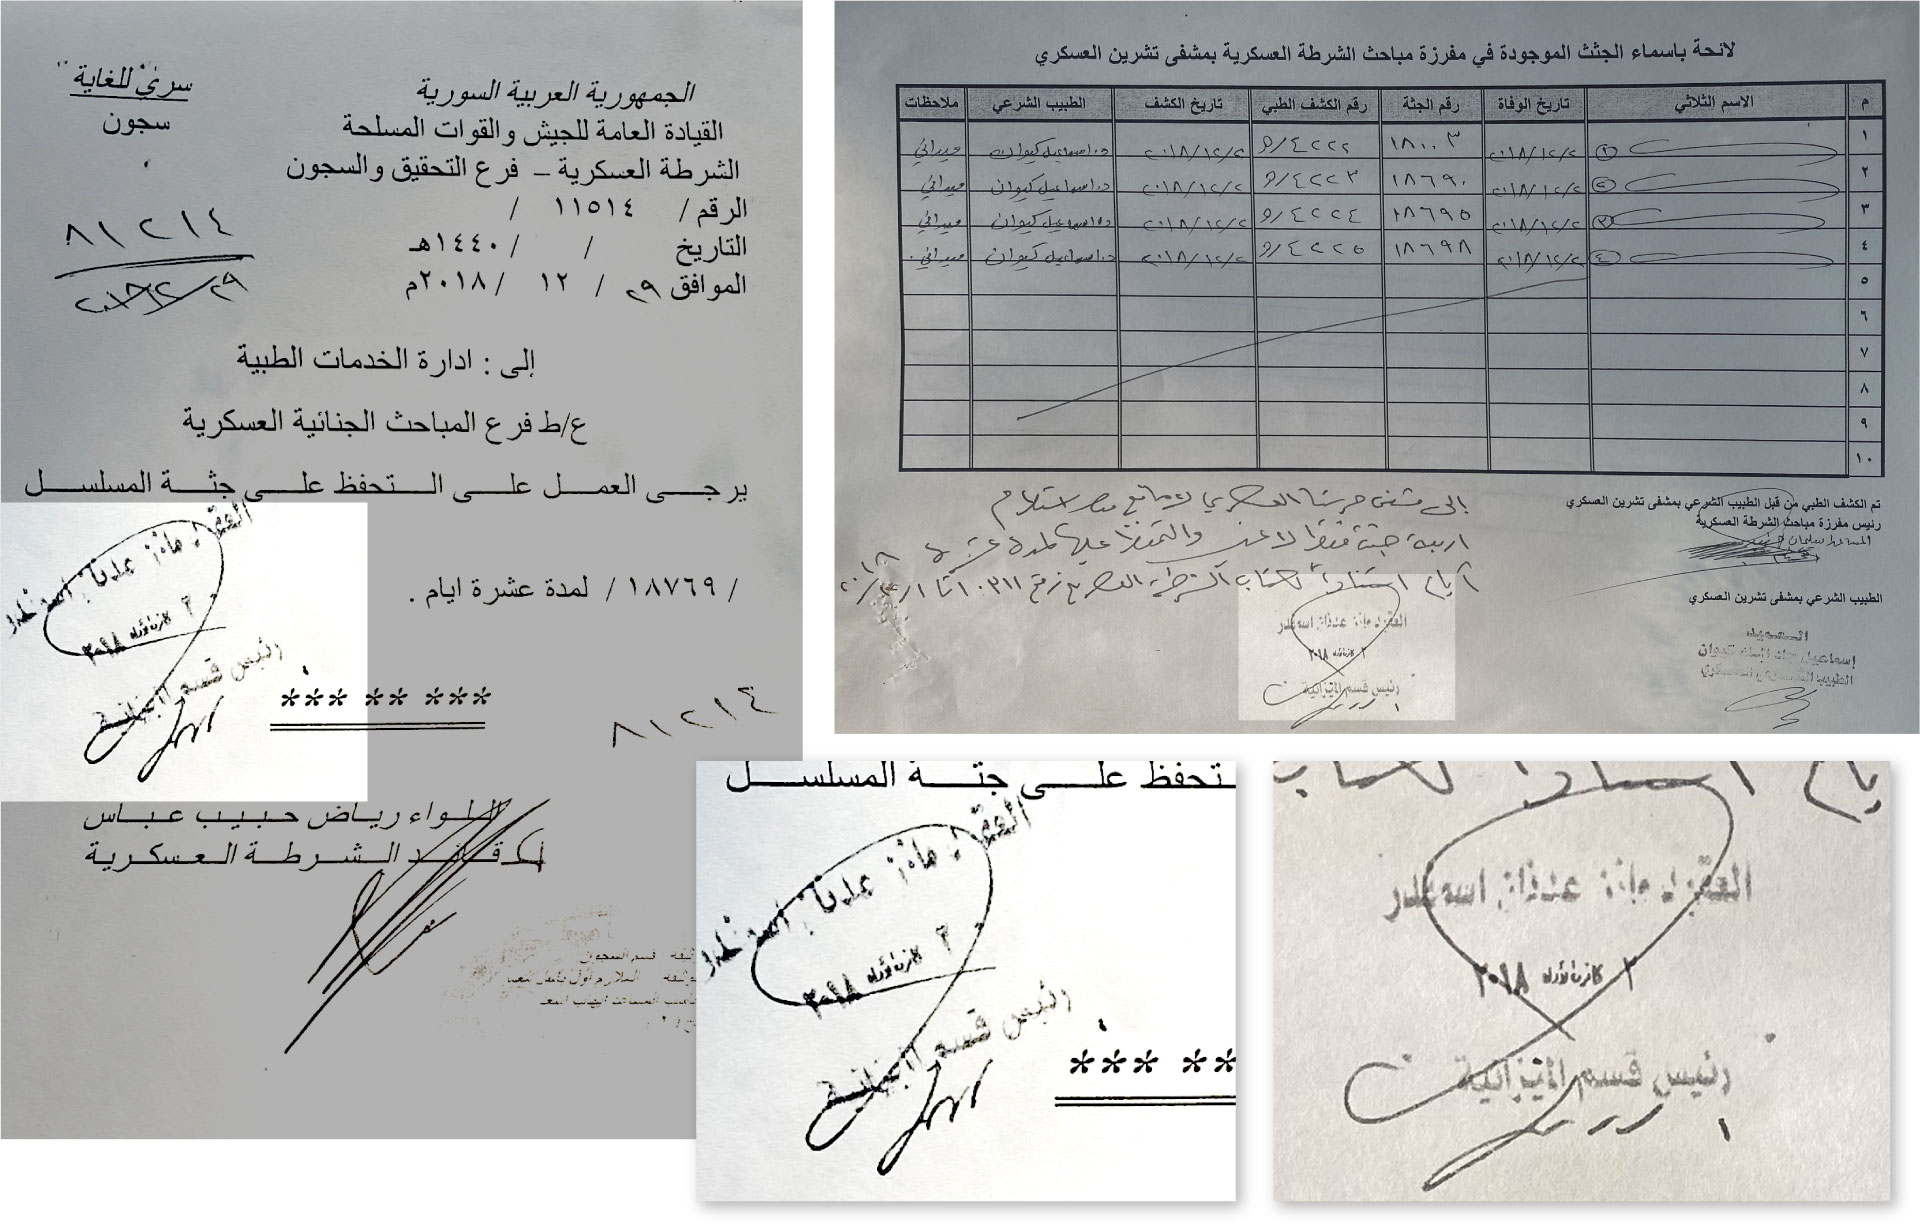 سري للغاية
سجون
الجمهورية العربية السورية
القيادة العامة للجيش والقوات المسلحة
الشرطة العسكرية – فرع التحقيق والسجون
الرقم / ١١٥١٤ /
التاريخ / / ١٤٤٠هـ
الموافق ٢٩ / ١٢ / ٢٠١٨م
٨١٢١٤
٢٠١٨/١٢/٢٩
إلى : ادارة الخدمات الطبية
ع/ط فرع المباحث الجنائية العسكرية
يرجى العمل على التحفظ على جثة المسلسل
/ ١٨٧٦٩ / لمدة عشرة ايام .
العقيد مازن عدنان اسمندر
كانون أول ٢٠١٨
رئيس قسم الميزانية
*** ** ***
٨١٢١٤
اللواء رياض حبيب عباس
قائد الشرطة العسكرية
لائحة باسماء الجثث الموجودة في مفرزة مباحث الشرطة العسكرية بمشفى تشرين العسكري
م الاسم الثلاثي تاريخ الوفاة رقم الجثة رقم الكشف الطبي تاريخ الكشف الطبيب الشرعي ملاحظات
١ ٢٠١٨/١٢/٢ ١٨٠٠٣ ٤٢٢٢/و ٢٠١٨/١٢/٢ د.اسماعيل كيوان ميداني
٢ ٢٠١٨/١٢/٢ ١٨٦٩٠ ٤٢٢٣/و ٢٠١٨/١٢/٢ د.اسماعيل كيوان ميداني
٣ ٢٠١٨/١٢/٢ ١٨٦٩٥ ٤٢٢٤/و ٢٠١٨/١٢/٢ د.اسماعيل كيوان ميداني
٤ ٢٠١٨/١٢/٢ ١٨٦٩٨ ٤٢٢٥/و ٢٠١٨/١٢/٢ د.اسماعيل كيوان ميداني
٥
٦
٧
٨
٩
١٠
تم الكشف الطبي من قبل الطبيب الشرعي بمشفى تشرين العسكري
رئيس مفرزة مباحث الشرطة العسكرية
المساعد سليمان
إلى مشفى حرستا العسكري لا مانع من استلام
اربعة جثث فقط لا غير والتحفظ عليها لمدة عشرة
أيام استنادا لكتاب الشرطة العسكرية رقم ١٠٣١١
الطبيب الشرعي بمشفى تشرين العسكري
العميد
إسماعيل كيوان
العقيد مازن عدنان اسمندر
٢ كانون أول ٢٠١٨
رئيس قسم الميزانية
تحفظ على جثة المسلسل
العقيد مازن عدنان اسمندر
كانون أول ٢٠١٨
رئيس قسم الميزانية
*** **
أيام استنادا لكتاب
العقيد مازن عدنان اسمندر
٢ كانون أول ٢٠١٨
رئيس قسم الميزانية